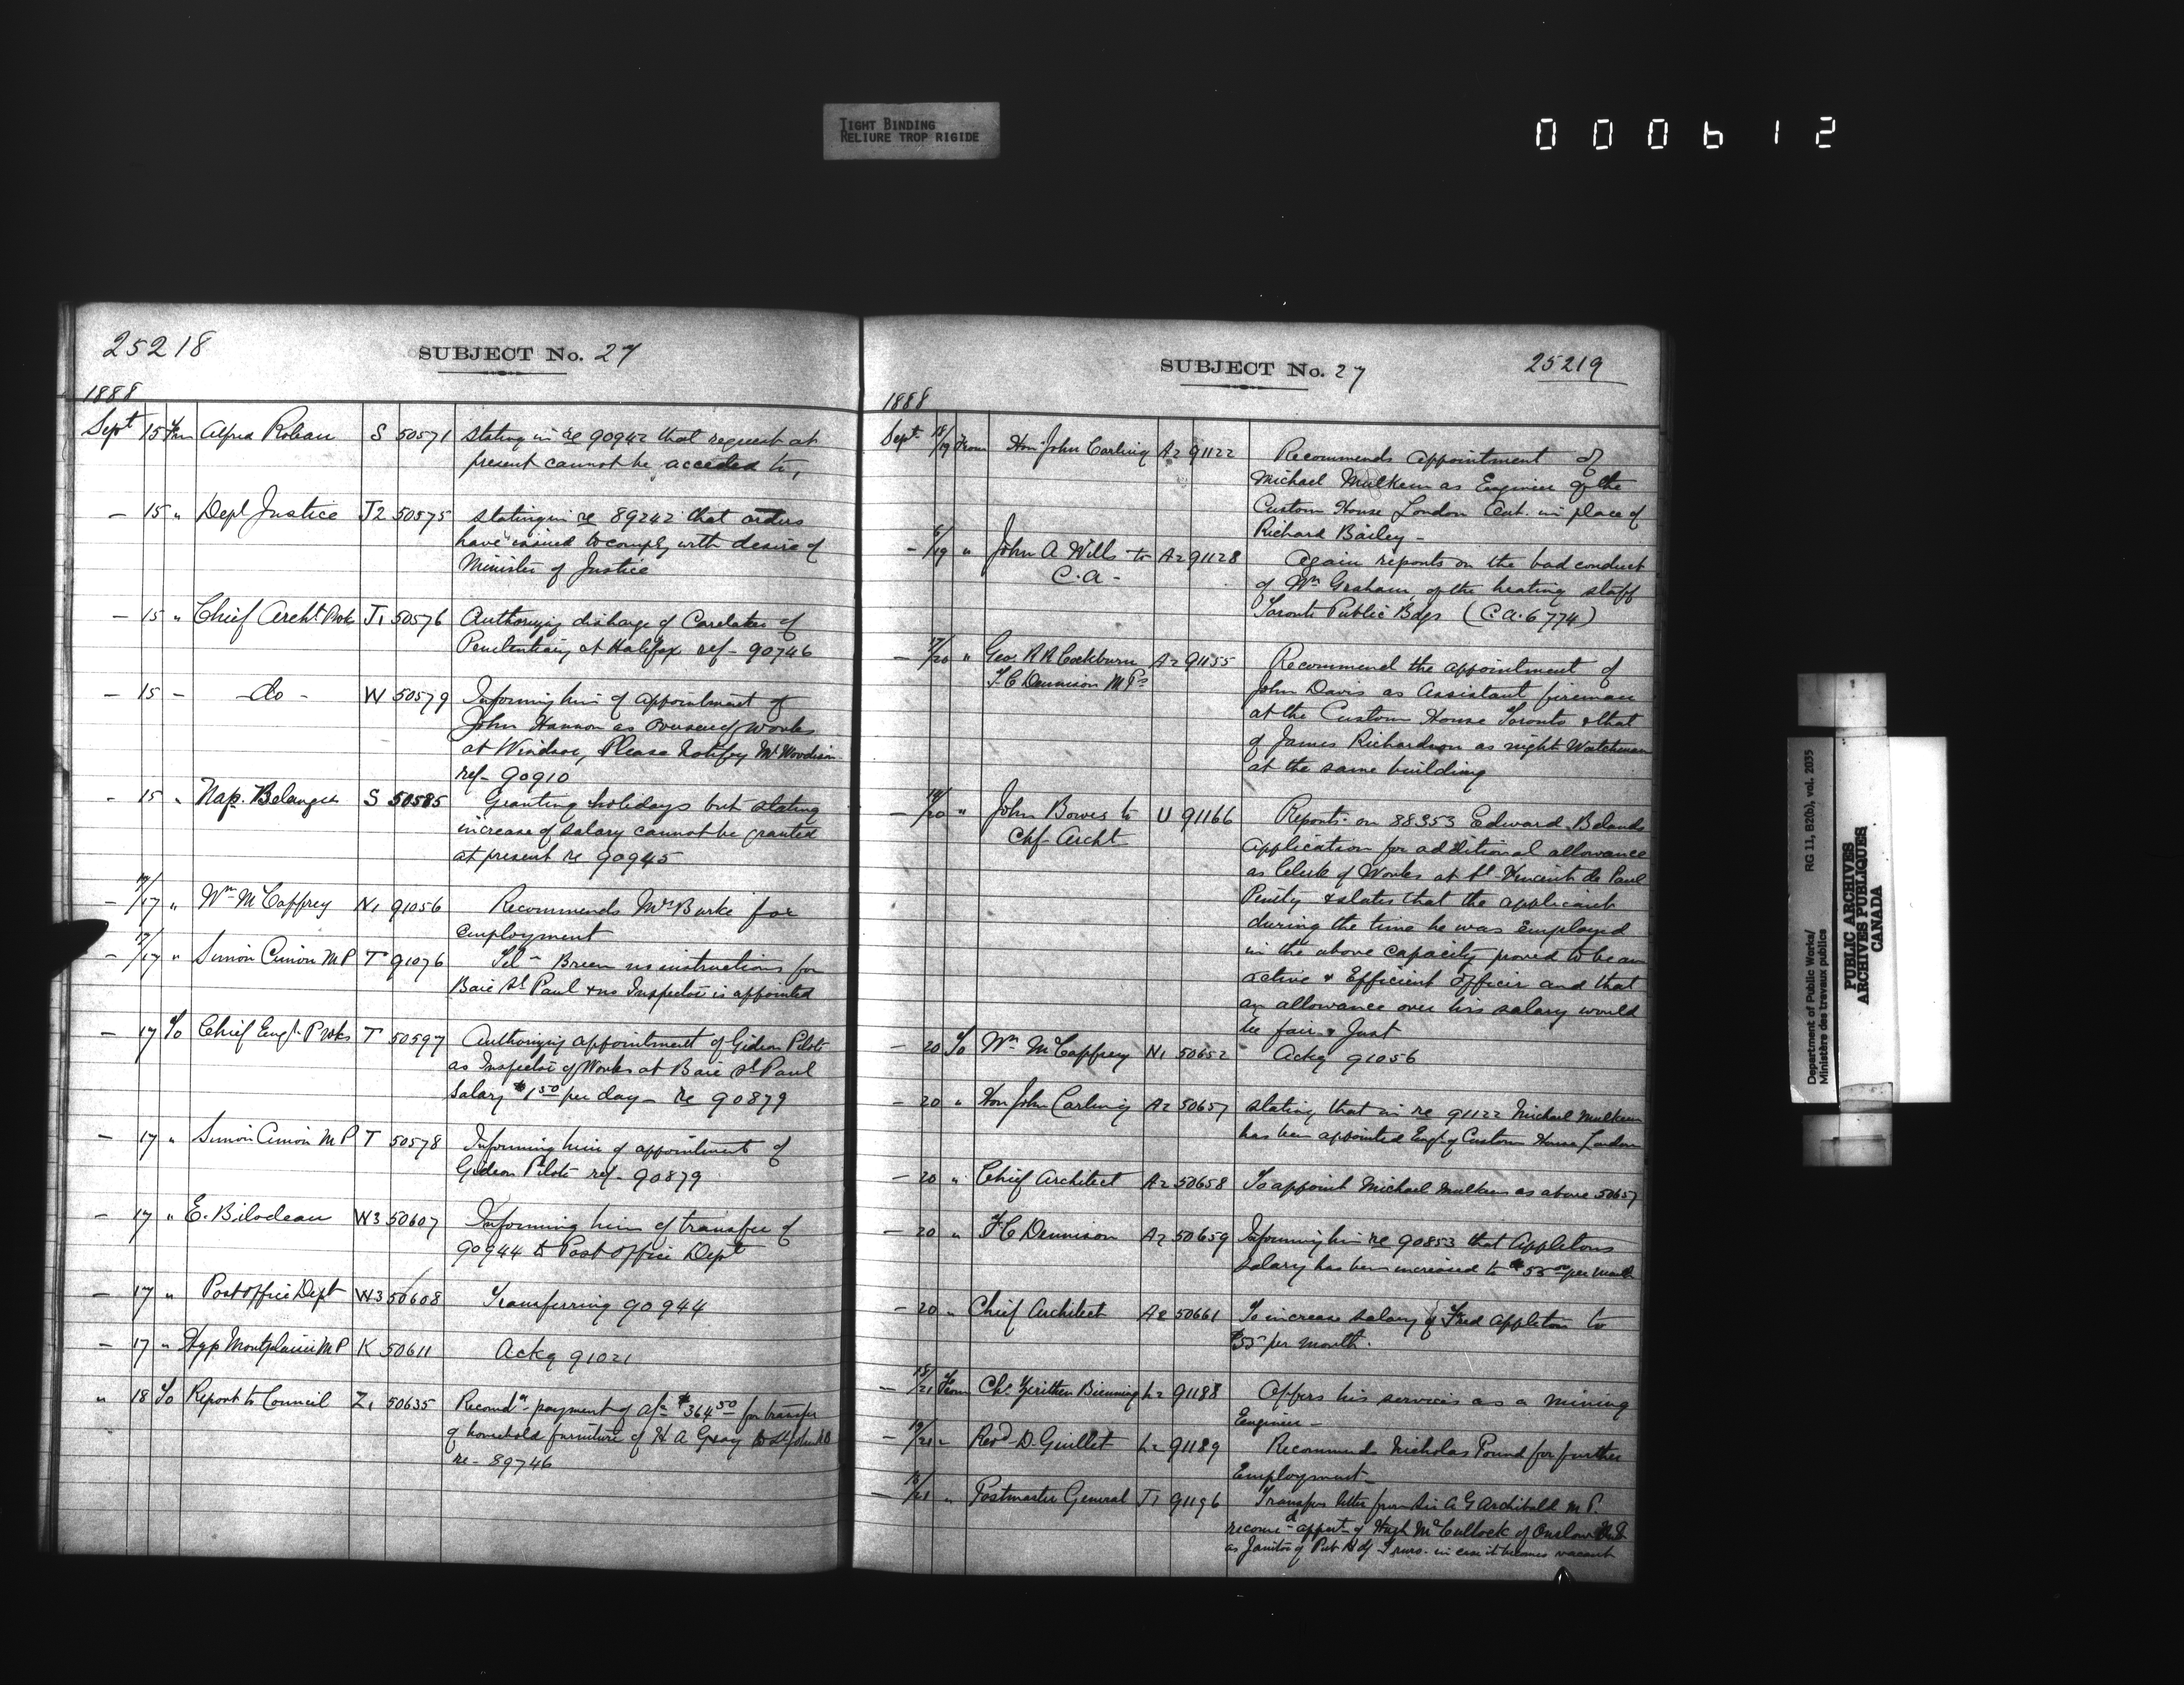 TIGHT BINDING
RELIURE TROP RIGIDE
000612
25218
SUBJECT No. 27
1888
Sept 15 Frm Alfred S 50571 stating in re 90942 that request at
present cannot be acceded to,
- 15 " Dept Justice J2 50575 stating in re 89242 that orders
have issued to comply with desire of
Minister of Justice
- 15 " Chief Archt P Wks J1 50576 Authorizing discharge of Caretaker of
Penitentiary at Halifax ref- 90746
- 15 - -do- W 50579 Informing him of appointment of
John Hannon as Overseer of works
at Windsor, Please Notify Mr
ref- 90910
- 15 " Nap. Belanger S 50585 Granting holidays but stating
increase of salary cannot be granted
at present re 90945
- 17/17 " Wm McCaffrey N1 91056 Recommends Mrs Burke for
employment
- 17/17 " Simon Cimon MP T 91076 Tel - Breen no instructions for
Baie St Paul & no Inspector is appointed
- 17 To Chief Engr P Wks T 50597 Authorizing appointment of Gideon Pilote
as Inspector of Works at Baie St Paul
Salary $1 50 per day - re 90879
- 17 " Simon Cimon M P T 50578 Informing him of appointment of
Gideon Pilote ref- 90879
- 17 " E. Bilodeau W3 50607 Informing him of transfer of
90944 to Post office Dept
- 17 " Post office Dept W3 50608 Transferring 90944
- 17 " Hyp Montplaisir MP K 50611 Ackg 91021
" 18 To Report to Council Z1 50635 Recomdn payment of a/c $364 50 for transfer
of household furniture of H A Gray to St John NB
re- 89746
SUBJECT No. 27
25219
1888
Sept. 18/19 From Hon John Carling A2 91122 Recommends appointment of
Michael Mulkern as Engineer of the
Custom House London Ont. in place of
Richard Bailey -
- 6/19 " John A Wills to A2 91128 Again reports on the bad conduct
C.A - of Wm Graham, of the heating staff
Toronto Public Bdgs (C.A. 6774)
- 17/20 " Geo. R R Cockburn A2 91155 Recommend the appointment of
F C Dennison M Ps John Davis as Assistant fireman
at the Custom House Toronto & that
of James Richardson as night Watchman
at the same building
- 19/20 " John Bowes to U 91166 Reports on 88353 Edward Belands
Chf- Archt application for additional allowance
as Clerk of Works at St- Vincent de Paul
Penity & states that the applicant
during the time he was employed
in the above capacity proved to be an
active & Efficient Officer and that
an allowance over his salary would
be fair & Just
- 20 To Wm McCaffrey N1 50652 Ackg 91056
- 20 " Hon John Carling A2 50657 stating that in re 91122 Michael Mulkern
has been appointed Engr of Custom House London
- 20 " Chief Architect A2 50658 To appoint Michael Mulkern as above 50657
- 20 " F C Dennison A2 50659 Informing him re 90853 that Appletons
salary has been increased to $55 00 per month
- 20 " Chief Architect A2 50661 To increase salary of Fred Appleton to
$55 per month.
- 18/21 From Chs L2 91188 Offers his services as a mining
Engineer -
- 19/21 " Revd D. Guillet L2 91189 Recommends Nicholas Pound for further
Employment -
- 18/21 " Postmaster General J1 91196 Transfers letter from Sir A G Archibald M P.
recomd appmt of Hugh McCullock of Onslow N S
as Janitor of Pub Bdg Truro- in case it becomes vacant
Department of Public Works/
Ministère des travaux publics
RG 11, B2(b), vol. 2035
PUBLIC ARCHIVES
ARCHIVES PUBLIQUES
CANADA